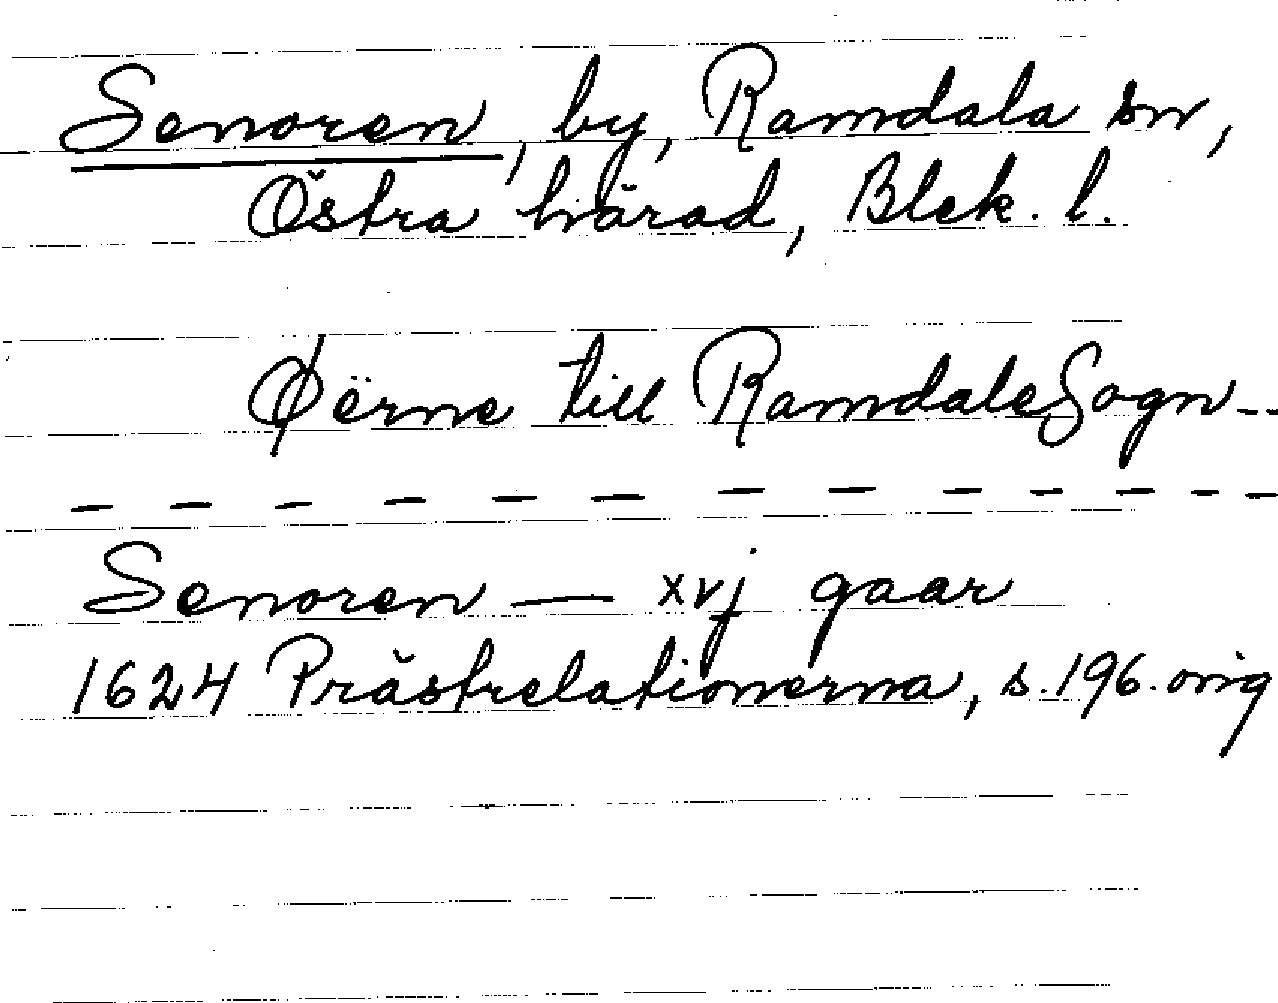 Senoren, by, Ramdala sn,
Östra härad, Blek. l.
Øërne till Ramdale Sogn --
- - - - - - - - - - - - -
Senoren — xvj gaar
1624 Prästrelationerna, s. 196. orig